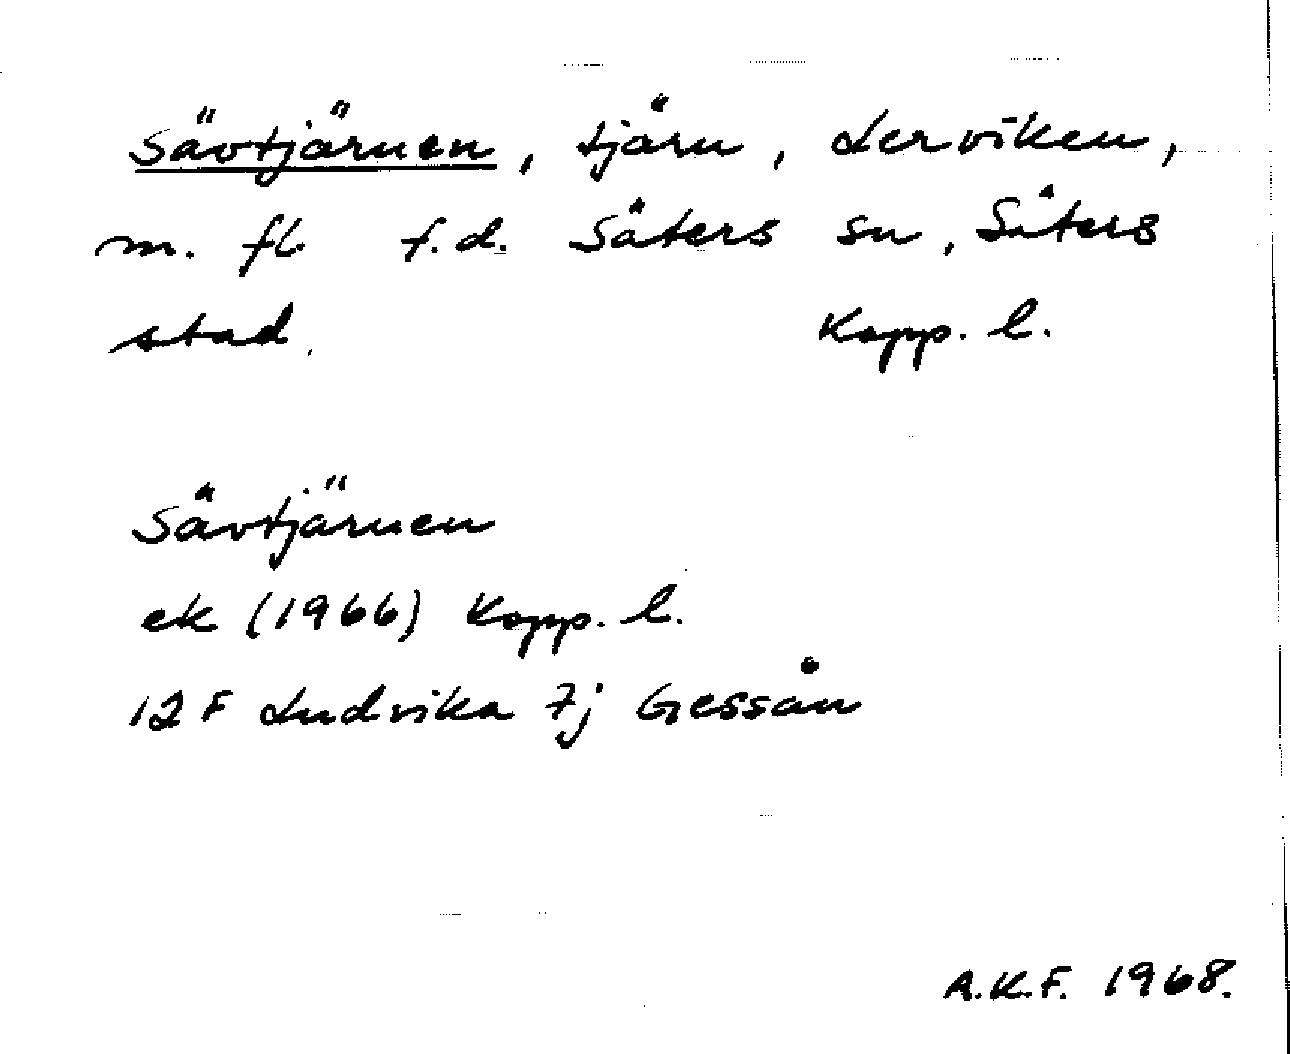 Sävtjärnen, tjärn, Lerviken,
m. fl f.d. Säters sn, Säters
stad. Kopp. l.
Sävtjärnen
ek (1966) Kopp. l.
12 F Ludvika 7j Gessån
A.K.F. 1968.